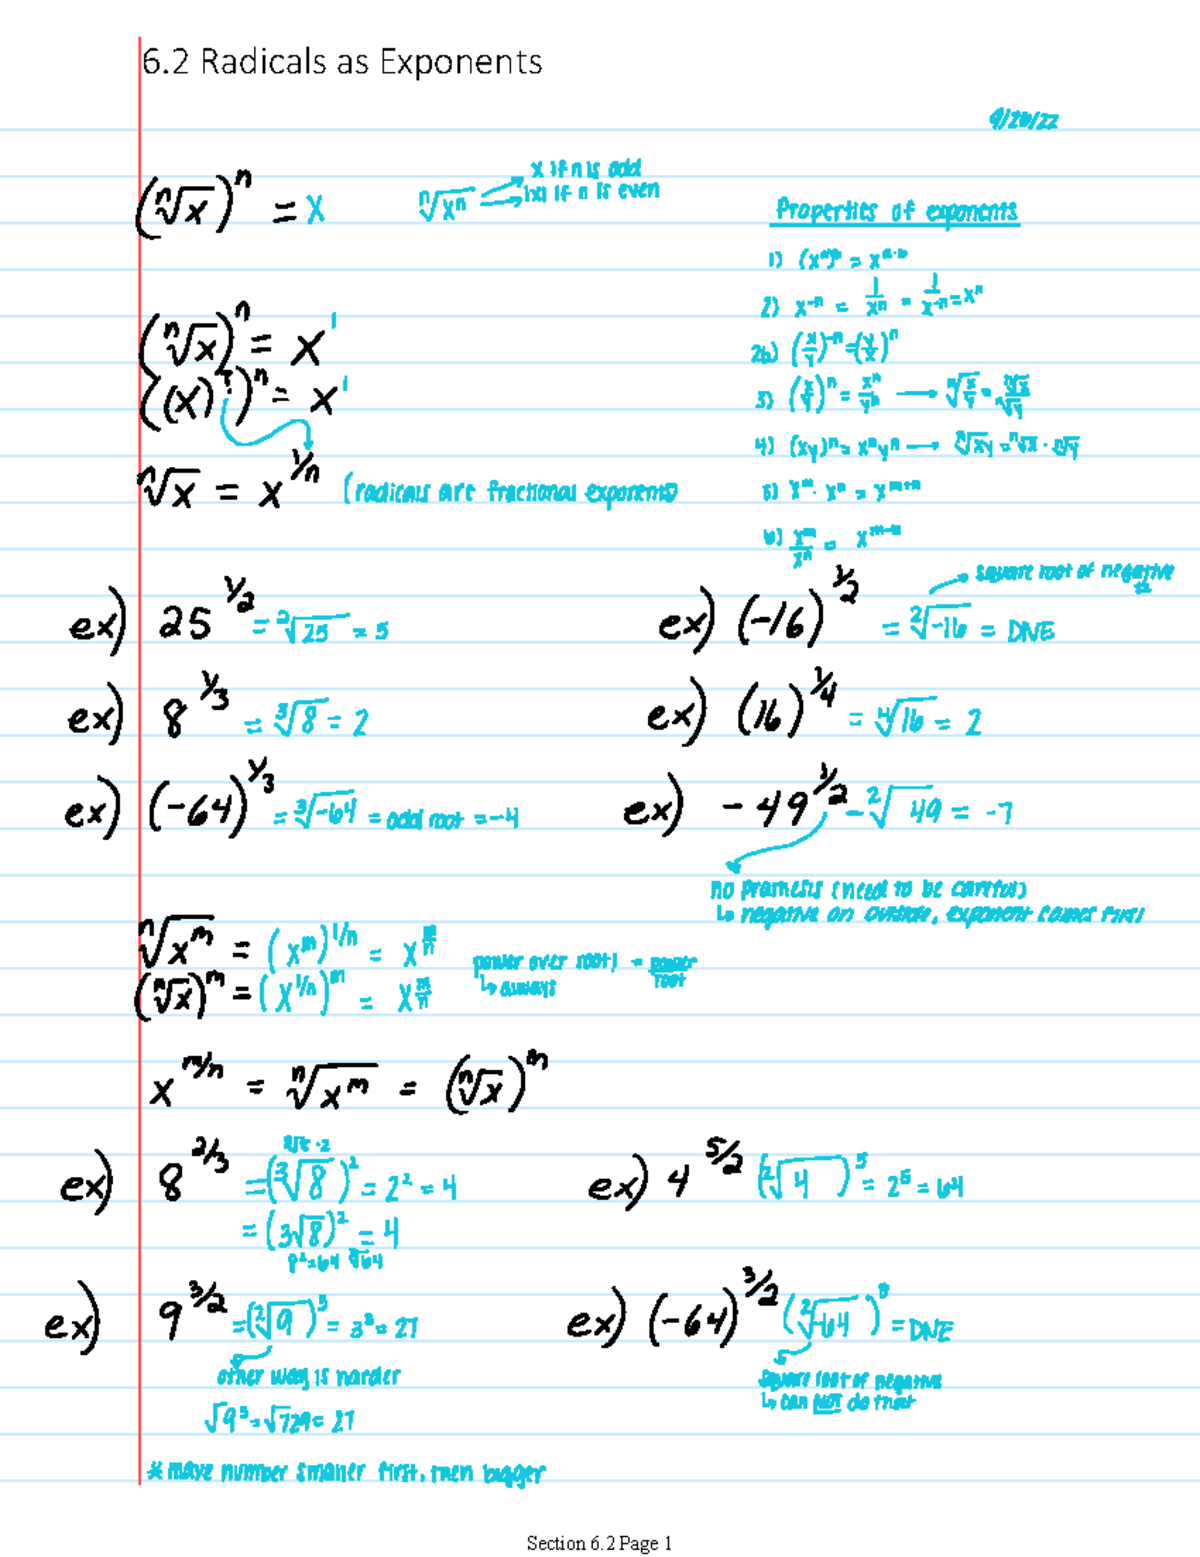 6.2 Radicals as Exponents
9/20/22
(ⁿ√x)ⁿ = x
ⁿ√xⁿ → x if n is odd
→ |x| if n is even
Properties of exponents
1) (xᵃ)ᵇ = xᵃ·ᵇ
2) x⁻ⁿ = 1/xⁿ = 1/x⁻ⁿ = xⁿ
2b) (x/y)⁻ⁿ = (y/x)ⁿ
3) (x/y)ⁿ = xⁿ/yⁿ → ⁿ√x/y = ⁿ√x/ⁿ√y
4) (xy)ⁿ = xⁿyⁿ → ⁿ√xy = ⁿ√x · ⁿ√y
5) xᵐ · xⁿ = xᵐ⁺ⁿ
6) xᵐ/xⁿ = xᵐ⁻ⁿ
(ⁿ√x)ⁿ = x¹
((x)^?)ⁿ = x¹
ⁿ√x = x^1/n (radicals are fractional exponents
ex) 25^1/2 = ²√25 = 5
ex) (-16)^1/2 = ²√-16 = DNE
square root of negative
ex) 8^1/3 = ³√8 = 2
ex) (16)^1/4 = ⁴√16 = 2
ex) (-64)^1/3 = ³√-64 = odd root = -4
ex) -49^1/2 -²√49 = -7
no prathesis (need to be careful)
↳ negative on outside, exponent comes first
ⁿ√xᵐ = (xᵐ)^1/n = x^m/n
(ⁿ√x)ᵐ = (x^1/n)ᵐ = x^m/n
power over root) = power/root
↳ always
x^m/n = ⁿ√xᵐ = (ⁿ√x)ᵐ
ex) 8^2/3 = (³√8)² = 2² = 4
= (3√8)² = 4
8²=64 ³√64
ex) 4^5/2 (²√4)⁵ = 2⁵ = 64
ex) 9^3/2 = (²√9)³ = 3³ = 27
other way is harder
√9³ = √729 = 27
ex) (-64)^3/2 (²√-64)³ = DNE
square root of negative
↳ can NOT do that
* make number smaller first, then bigger
Section 6.2 Page 1